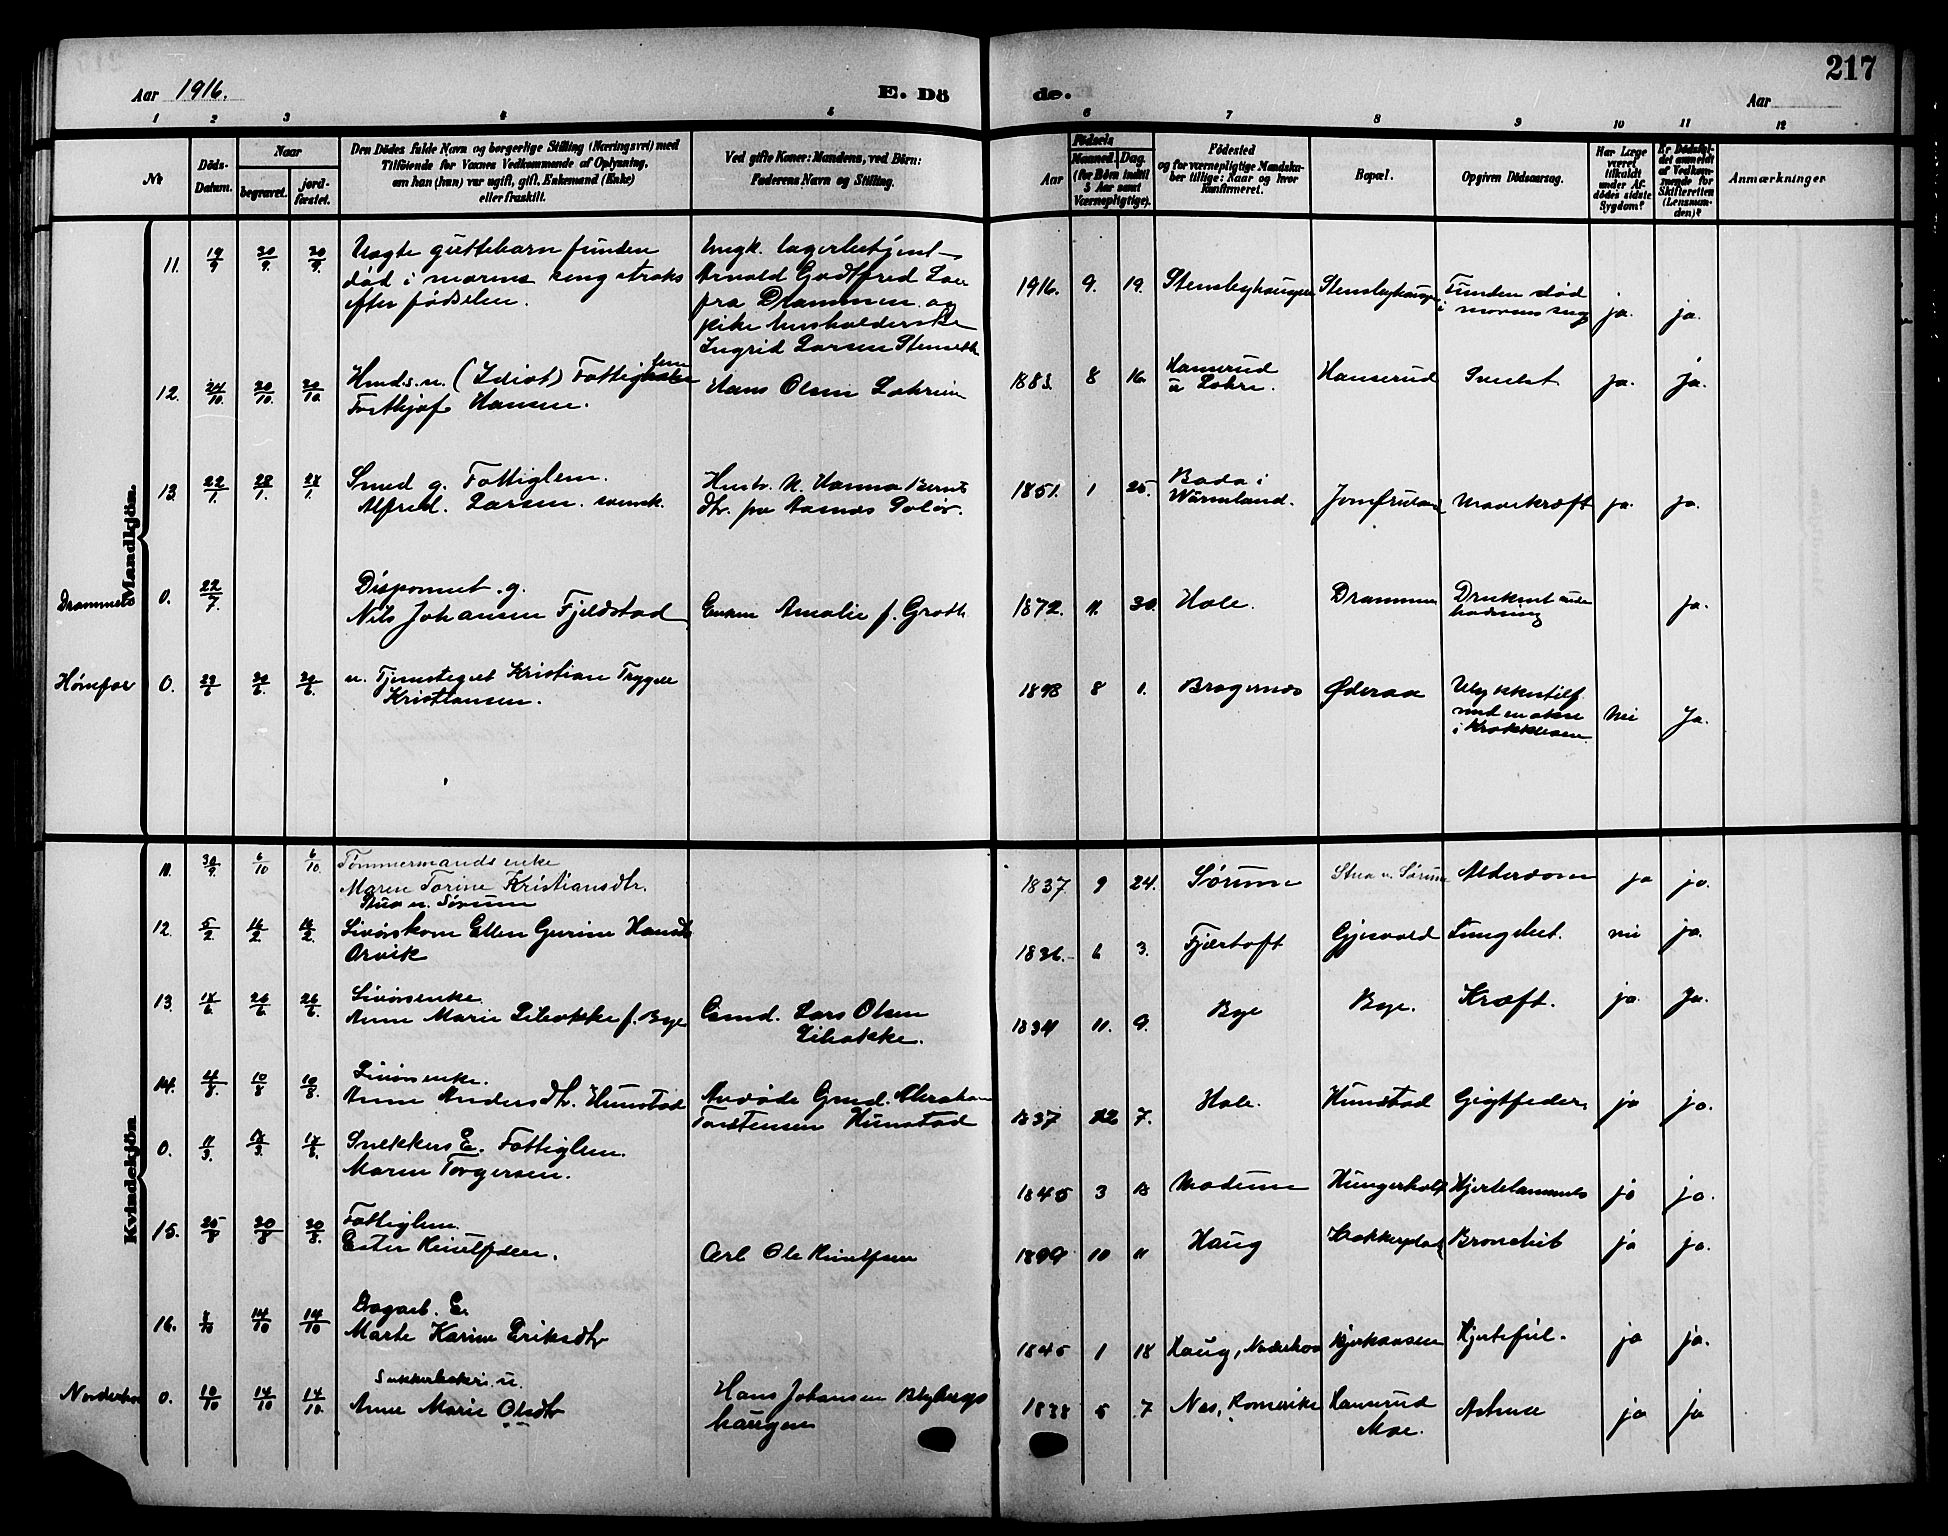 217
Aar 1916.
E. Dö
de.
Aar
1 2 3 4 5 6 7 8 9 10 11 12
No
Döds-
Datum.
Naar
begravet.
jord-
fæstet.
Den Dödes fulde Navn og borgerlige Stilling (Næringsvei) med
Tilföiende for Voxnes Vedkommende af Oplysning,
om han (hun) var ugift, gift, Enkemand (Enke)
eller fraskilt.
Ved gifte Koner: Mandens, ved Börn:
Faderens Navn og Stilling.
Aar
Födsels
Maaned. Dag.
(for Börn indtil
5 Aar samt
Værnepligtige).
Födested
og for værnepligtige Mandska-
ber tillige: Naar og hvor
konfirmeret.
Bopæl.
Opgiven Dödsaarsag.
Har Læge
været
tilkaldt
under Af-
dödes sidste
Sygdom?
Er Dödsfal-
det anmeldt
af Vedkom-
mende for
Skifteretten
(Lensman-
den)?
Anmærkninger
Mandkjön.
11. 19/9 30/9 30/9
Uægte guttebarn funden
død i morens seng straks
efter fødselen.
Ungk. lagerbetjent
Arnold Godtfred
fra Drammen og
pike husholderske
Ingrid Larsen
1916. 9. 19. Stensbyhaugen Stensbyhaugen Funden død
i morens seng ja. ja.
12. 24/10 30/10 30/10
(Idiot) Fattiglem
Hansen.
Hans Olsen
1883. 8 16. Hanserud
u Lohre. Hanserud ja. ja.
13. 22/1. 28/1. 28/1.
Smed g. Fattiglem.
Alfred Larsen. svensk.
Hustr. N. Hanna Bernts
dtr. fra Aasnes Solør.
1851. 1 25. Boda i
Wärmland. Mavekræft ja. ja.
Drammens 0. 22/7
Disponent. g.
Nils Johansen Fjeldstad
Enken Amalie f. Groth
1872. 11. 30. Hole. Drammen Druknet under
badning ja.
Hønefos 0. /6 30/6 30/6.
u. Tjenestegut Kristian Trygve
Kristiansen.
1898 8 1. Bragernes Øderaa Ulykkestilf.
med en
i Krokkleven. Nei Ja.
Kvindekjön
11. 30/9 6/10 6/10.
Tømmermands enke
Maren Torine Kristiansdtr.
Stua u. Sørum
1837. 9 24. Sørum Stua u. Sørum Alderdom ja ja.
12. 5/2 16/2 16/2.
Livørskone Ellen Gurine Hansdtr
Arvik
1836. 6 3. Fjærtoft Gjesvold Lungebet. nei ja.
13. 18/6 26/6 26/6.
Livørsenke.
Anne Marie f. Bye
Gmd. Lars Olsen
1834 11. 9. Bye Bye. Kræft. ja. Ja.
14. 4/8. 10/8 10/8.
Livørsenke.
Anne Andersdtr. Hunstad
Avdøde Gmd. Abraham
Torstensen Hunstad
1837 12 7. Hole. Hunstad Gigtfeber. ja ja.
0. 11/3 18/3 18/3.
Snekkers E. Fattiglem.
Maren Torgersen.
1845 3 13 Modum Hungerholt Hjertelammelse ja ja.
15. 25/8 30/8 30/8.
Fattiglem.
Ester Knutsen.
Carl Ole Knutsen
1899 10 11 Haug Bronchit ja ja.
16. 8/10 14/10 14/10
Dagarb. E.
Marte Karine Eriksdtr
1845 1 18 Haug, Norderhov Hjertefeil. ja ja.
Norderhov 0. 10/10 14/10 14/10.
u.
Anne Marie Olsdtr
Hans Johansen Blybergs
haugen
1838 5 7 Nes, Romerike Hanserud
Moe. ja ja